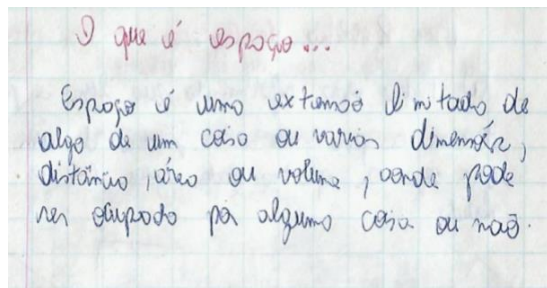 O que é espaço...
Espaço é uma extensão limitado de
algo de um caso ou varios dimensões,
distância, área ou volume, aonde pode
ser ocupado por alguma coisa ou não.